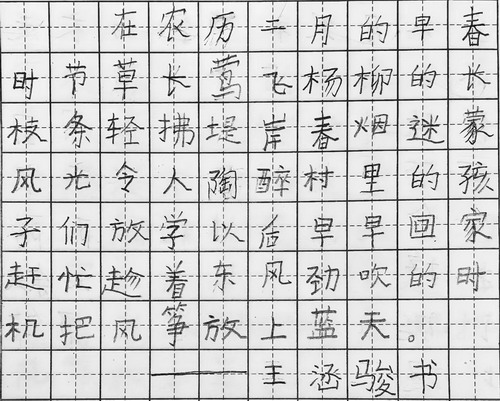 在农历二月的早春
时节草长莺飞杨柳的长
枝条轻拂堤岸春烟迷蒙
风光令人陶醉村里的孩
子们放学以后早早回家
赶忙趁着东风劲吹的时
机把风筝放上蓝天。
——王涵骏书